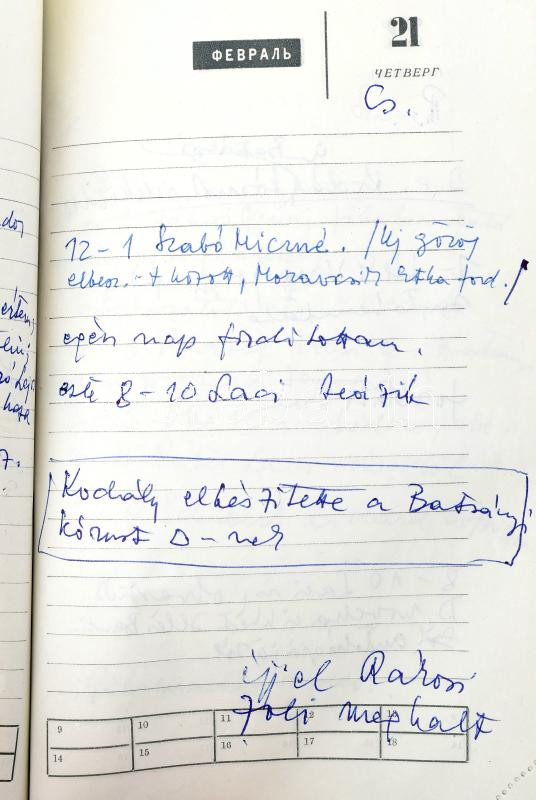 ФЕВРАЛЬ
21
ЧЕТВЕРГ
Cs.
12-1 Szabó Miczné. /Új görög
elbesz.-t hozott, Moravcsik Etka ford./
egész nap fordítottam.
este 8-10 Laci teázik
Kodály elkészítette a Batsányi
kórust D-nek
éjjel Rákosi
Zoli meghalt
9 10 11 12 13
14 15 16 17 18